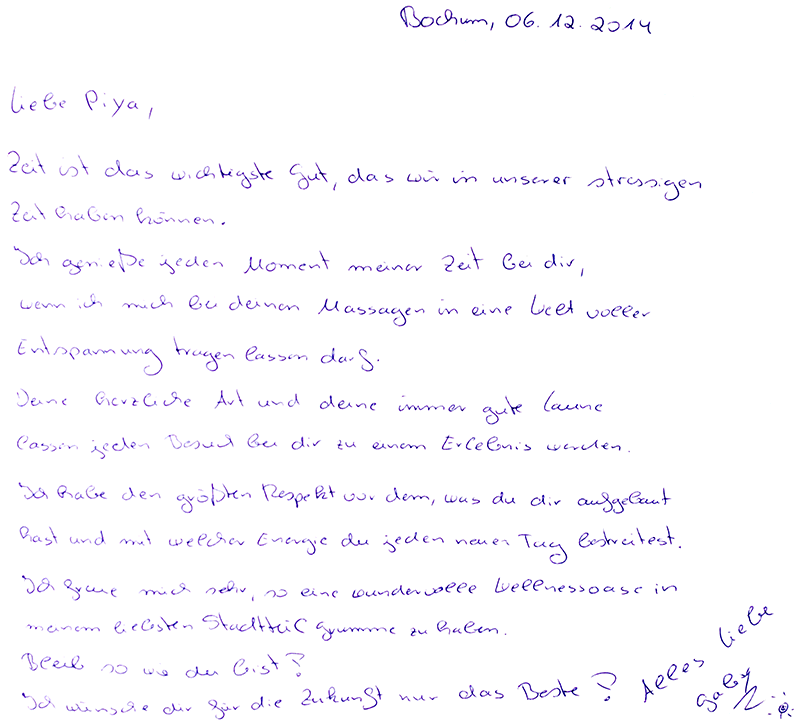 Bochum, 06.12.2014
Liebe Piya,
Zeit ist das wichtigste Gut, das wir in unserer stressigen
Zeit haben können.
Ich genieße jeden Moment meiner Zeit bei dir,
wenn ich mich bei deinen Massagen in eine Welt voller
Entspannung tragen lassen darf.
Deine herzliche Art und deine immer gute Laune
lassen jeden Besuch bei dir zu einem Erlebnis werden.
Ich habe den größten Respekt vor dem, was du dir aufgebaut
hast und mit welcher Energie du jeden neuen Tag bestreitest.
Ich freue mich sehr, so eine wundervolle Wellnessoase in
meinem liebsten Stadtteil Grumme zu haben.
Bleib so wie du bist!
Ich wünsche dir für die Zukunft nur das Beste!
Alles liebe
Gaby